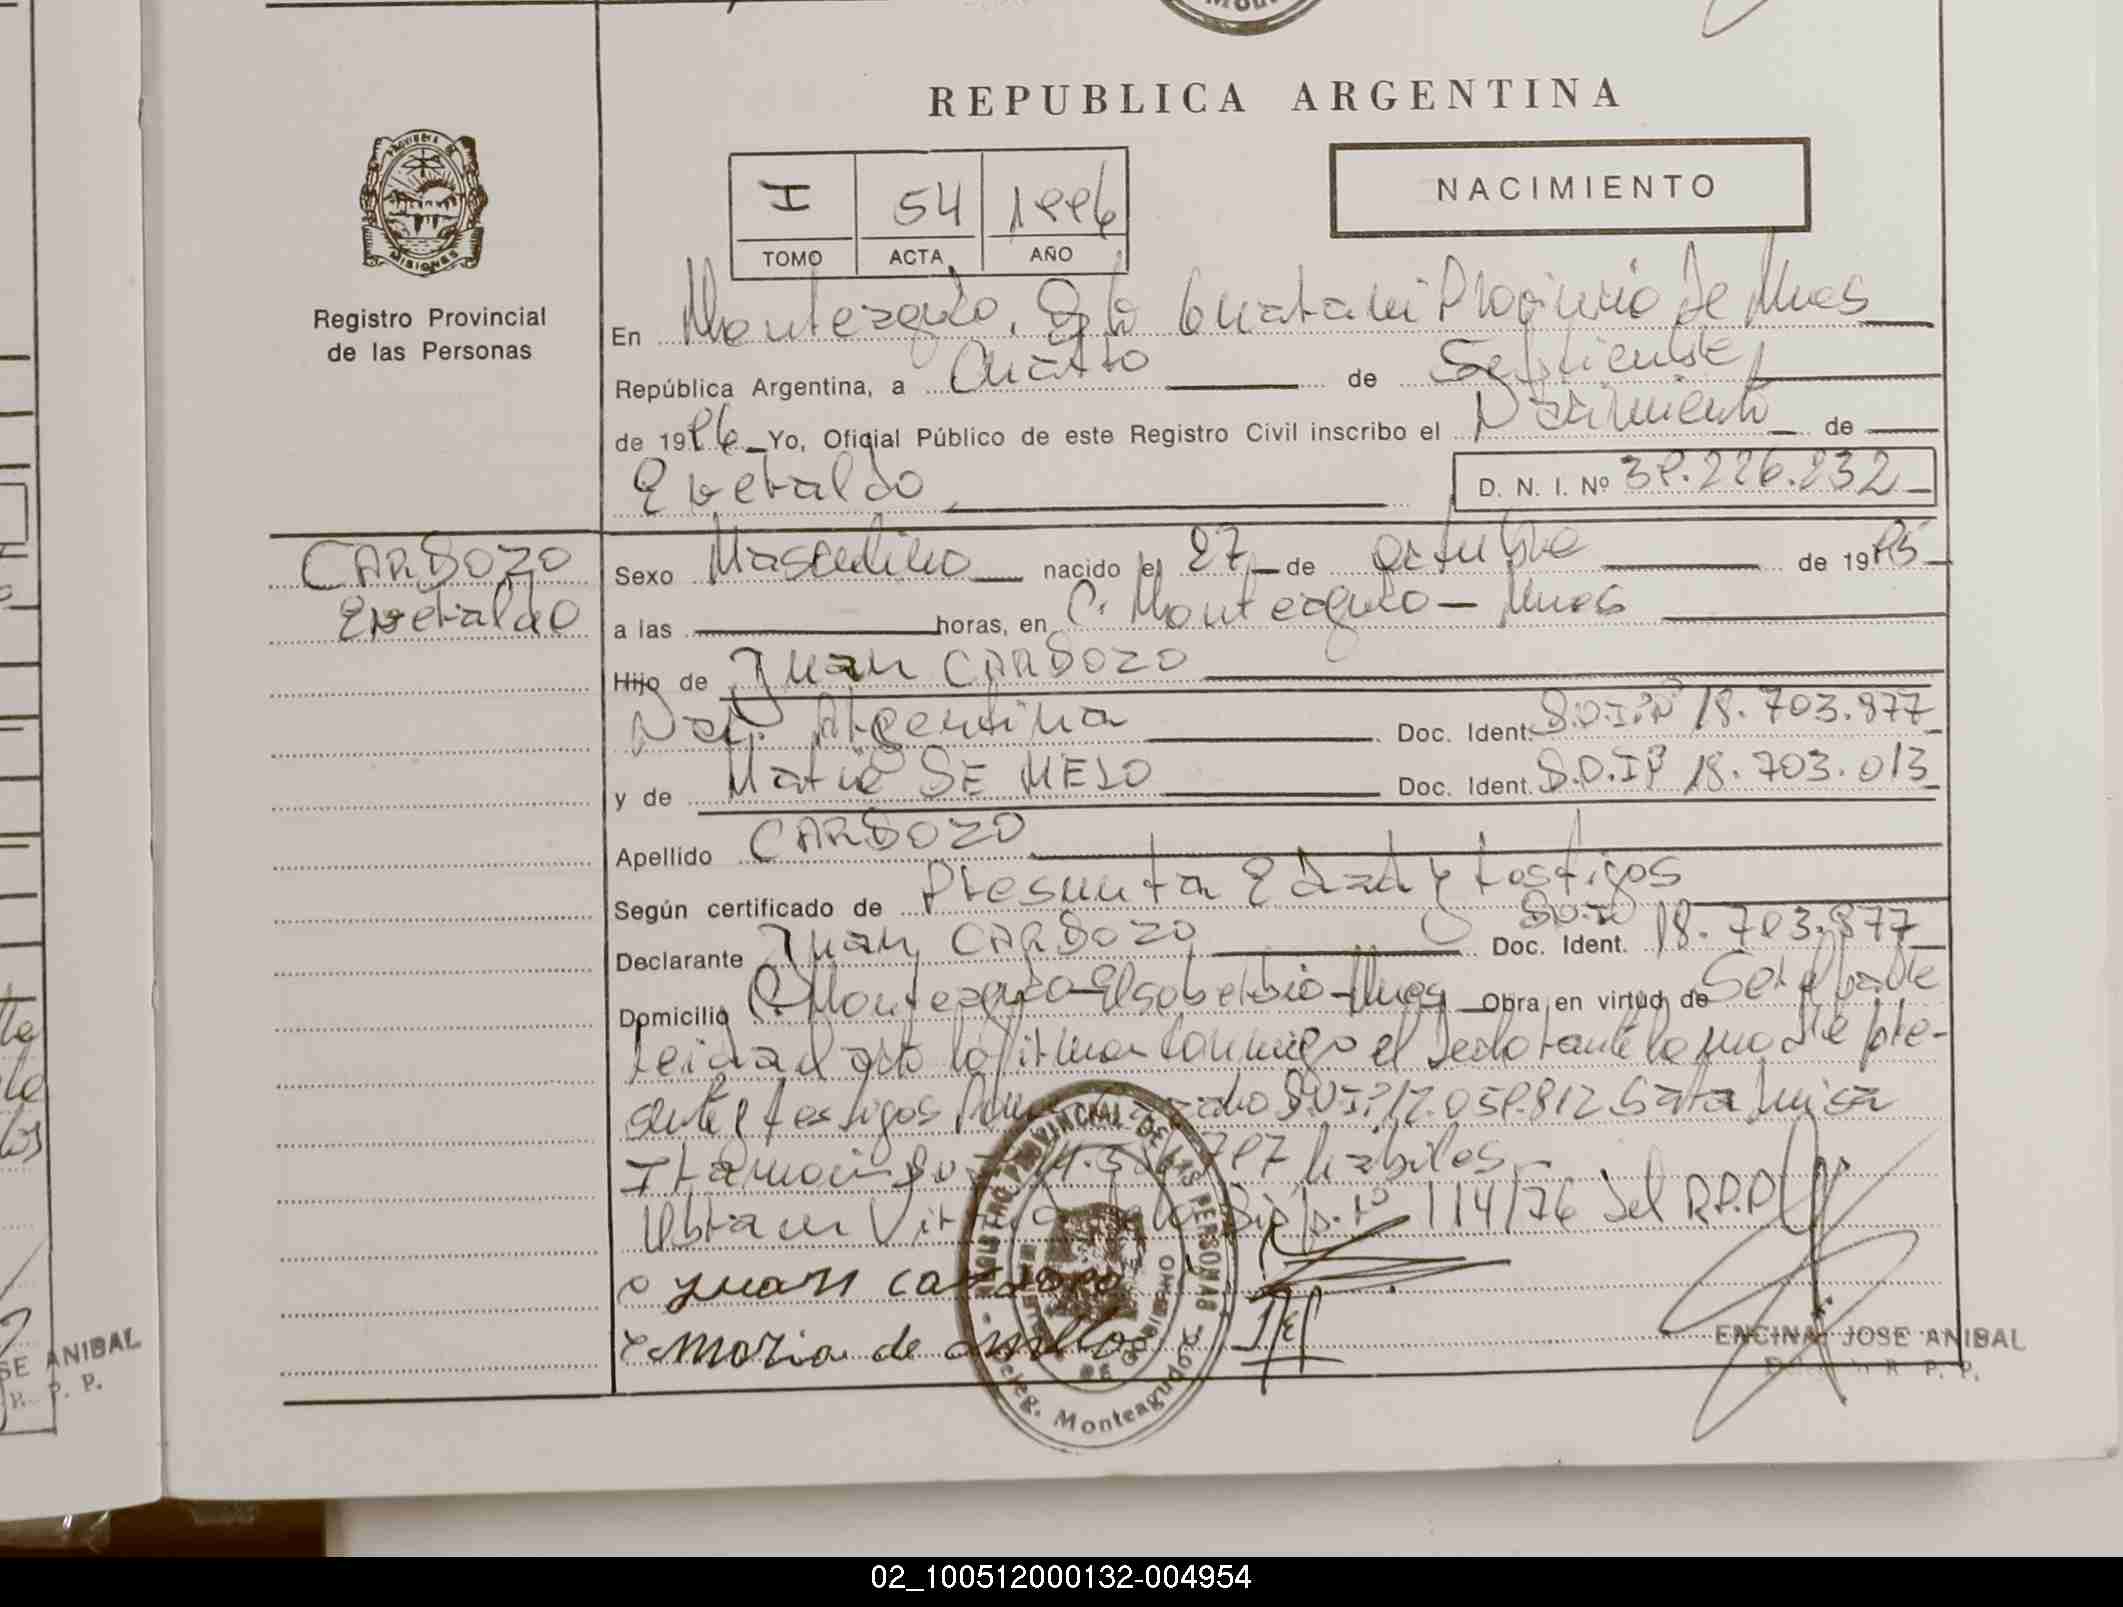 REPUBLICA ARGENTINA
PROVINCIA DE
MISIONES
Registro Provincial
de las Personas
I 54 1986
TOMO ACTA AÑO
NACIMIENTO
En Monteagudo, Dpto Guarani Provincia de Mnes
República Argentina, a Cuatro de Septiembre
de 1986 Yo, Oficial Público de este Registro Civil inscribo el Nacimiento de
Everaldo D. N. I. Nº 38.226.232
CARDOZO
Everaldo
Sexo Masculino nacido el 27 de octubre de 1985
a las horas, en C. Monteagudo - Mnes
Hijo de Juan CARDOZO
Nac. Argentina Doc. Ident. D.N.I. Nº 18.703.877
y de Maria DE MELO Doc. Ident. D.N.I Nº 18.703.013
Apellido CARDOZO
Según certificado de Presunta Edad y testigos
Declarante Juan CARDOZO Doc. Ident. D.N.I. 18.703.877
Domicilio C. Monteagudo - El soberbio - Mnes Obra en virtud de Ser el padre
leida el acta la firman conmigo el declarante la madre pre-
sente y testigos 12.058.812 Sara Luisa
habiles
Obra en Virtud Nº 114/76 del R.P.P.
Juan cardozo
Maria de mello
REGISTRO PROVINCIAL DE LAS PERSONAS
Deleg. Monteagudo
ENCINA JOSE ANIBAL
R. P. P.
SE ANIBAL
R. P. P.
02_100512000132-004954